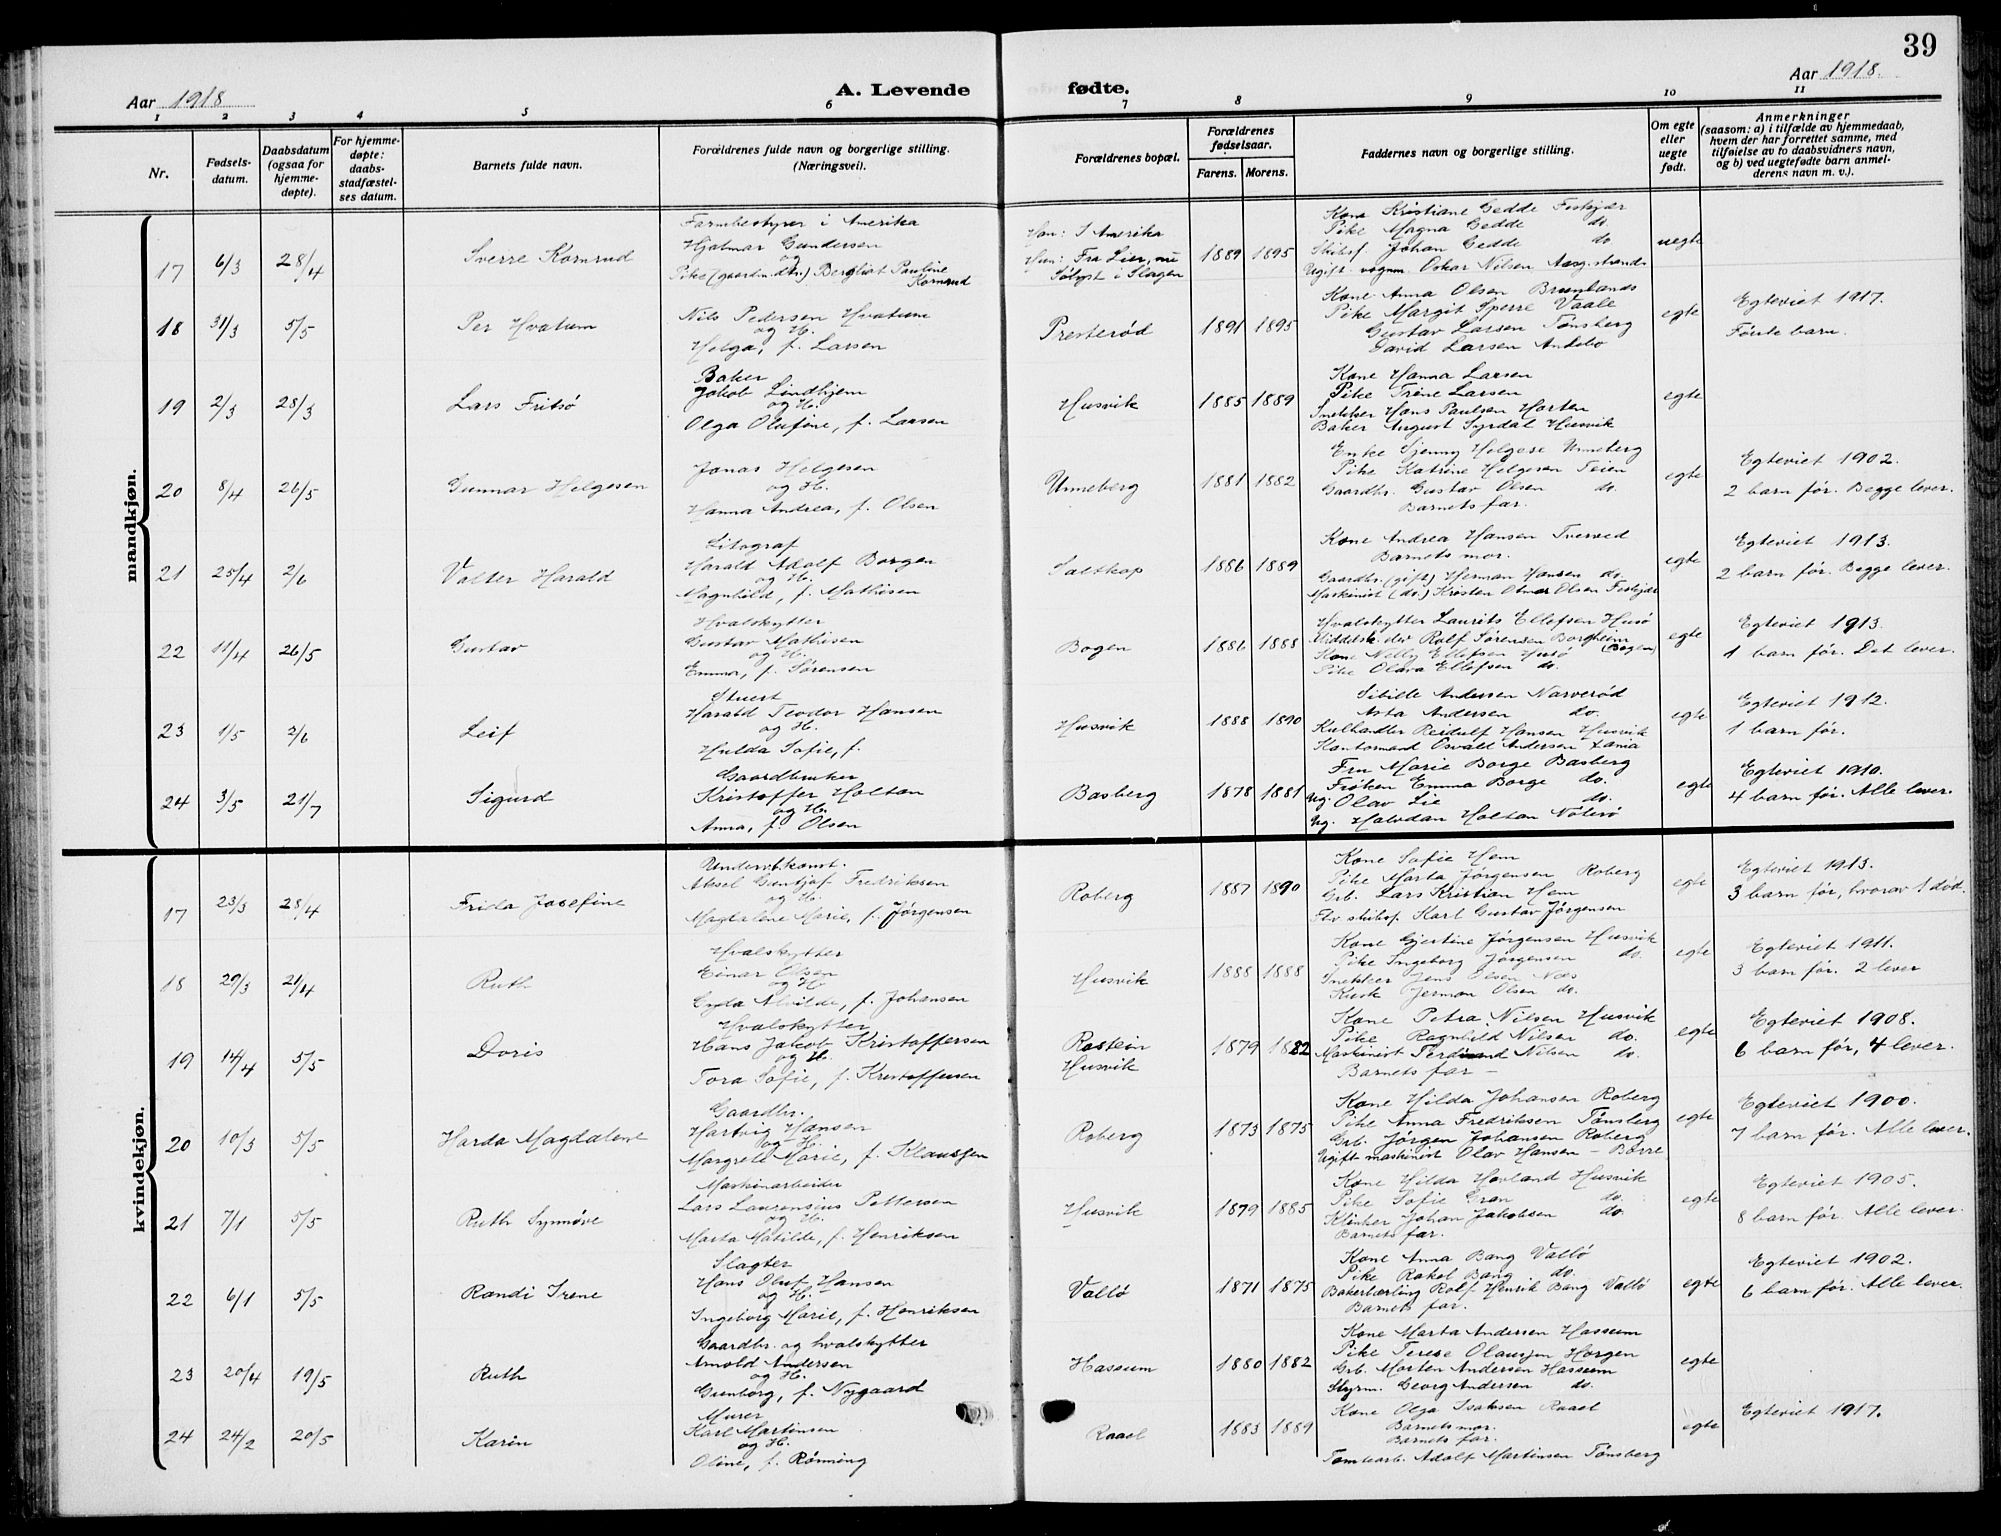 39
Aar 1918
A. Levende
fødte.
Aar 1918.
1 2 3 4 5 6 7 8 9 10 11
Nr.
Fødsels-
datum.
Daabsdatum
(ogsaa for
hjemme-
døpte).
For hjemme-
døpte:
daabs-
stadfæstel-
ses datum.
Barnets fulde navn.
Forældrenes fulde navn og borgerlige stilling.
(Næringsvei).
Forældrenes bopæl.
Forældrenes
fødselsaar.
Farens. Morens.
Faddernes navn og borgerlige stilling.
Om egte
eller
uegte
født.
Anmerkninger
(saasom: a) i tilfælde av hjemmedaab,
hvem der har forrettet samme, med
tilføielse av to daabsvidners navn,
og b) ved uegtefødte barn anmel-
derens navn m. v.).
mandkjøn.
17 6/3 28/4 Sverre Kornrud
Farmbestyrer i Amerika
Hjalmar Gundersen
og
Pike (gaardm.dtr.) Bergliot Pauline
Kornrud
Han: I Amerika
Hun: Fra Lier, nu
Sølyst i Slagen
1889 1895
Kone Kristiane Gedde Feskjær
Pike Magna Gedde do.
Skibsf. Johan Gedde do
Ugift vognm. Oskar Nilsen Aasg.strand
uegte
18 31/3 5/5 Per Hvatum
Nils Pedersen Hvatum
og H.
Helga, f. Larsen
Presterød
1891 1895
Kone Anna Olsen Brunlands
Pike Margit Sperre Vaale
Gustav Larsen Tønsberg
David Larsen Andebo
egte
Egteviet 1917.
Første barn.
19 2/3 28/3 Lars Fritsø
Baker
Jakob Lindhjem
og H.
Olga Olufine, f. Larsen
Husvik
1885 1889
Kone Hanna Larsen
Pike Trine Larsen
Snekker Hans Paulsen Horten
Baker August Syrdal Husvik
egte
20 8/4 26/5 Gunnar Helgesen
Jonas Helgesen
og H.
Hanna Andrea, f. Olsen
Unneberg
1881 1882
Enke Sjenny Helgese Unneberg
Pike Katrine Helgesen Teien
Gaardbr. Gustav Olsen do.
Barnets far.
egte
Egteviet 1902.
2 barn før. Begge lever.
21 25/4 2/6 Valter Harald
Litograf
Harald Adolf Borgen
og H.
Magnhild, f. Mathisen
Saltkop
1886 1889
Kone Andrea Hansen Tverved
Barnets mor.
Gaardbr. (gift) Herman Hansen do.
Maskinist (do.) Kristen Olmar Olsen Feskjær
egte
Egteviet 1913.
2 barn før. Begge lever.
22 11/4 26/5 Gustav
Hvalskytter
Gustav Mathisen
og H.
Emma, f. Sørensen
Bogen
1886 1888
Hvalskytter Laurits Ellefsen Husø
Middelsk. elev Rolf Sørensen Borgheim
Kone Nelly Ellefsen Husø (Bogen)
Pike Olava Ellefsen do.
egte
Egteviet 1913.
1 barn før. Det lever.
23 1/5 2/6 Leif
Stuert
Harald Teodor Hansen
og H.
Hulda Sofie, f.
Husvik
1888 1890
Sibille Andersen Narverød
Asta Andersen do.
Kulhandler Reidulf Hansen Husvik
Kontormand Osvald Andersen Xania
egte
Egteviet 1912.
1 barn før.
24 3/5 21/7 Sigurd
Gaardbruker
Kristoffer Holtan
og H.
Anna, f. Olsen
Basberg
1878 1881
Fru Marie Borge Basberg
Frøken Emma Borge do.
Ug. Olav Lie do.
Ug. Halvdan Holtan Nøterø
egte
Egteviet 1910.
4 barn før. Alle lever.
kvindekjøn.
17 23/3 28/4 Frida Josefine
Aksel Gustjof Fredriksen
og H.
Magdalene Marie, f. Jørgensen
Roberg
1887 1890
Kone Sofie Hem
Pike Marta Jørgensen Roberg
Grb. Lars Kristian Hem
Fhv skibsf. Karl Gustav Jørgensen
egte
Egteviet 1913.
3 barn før, hvorav 1 død.
18 29/3 21/4 Ruth
Hvalskytter
Einar Olsen
og H
Gyda Alvilde, f. Johansen
Husvik
1888 1888
Kone Gjertine Jørgensen Husvik
Pike Ingeborg Jørgensen do.
Snekker Jens Olsen Næs
Kusk Jerman Olsen do.
egte
Egteviet 1911.
3 barn før. 2 lever
19 14/4 5/5 Doris
Hvalskytter
Hans Jakob Kristoffersen
og H.
Tora Sofie, f. Kristoffersen
Rostein
Husvik
1879 1882
Kone Petra Nilsen Husvik
Pike Ragnhild Nilsen do.
Maskinist Ferdinand Nilsen do.
Barnets far –
egte
Egteviet 1908.
6 barn før, 4 lever.
20 10/3 5/5 Harda Magdalene
Gaardbr.
Hartvig Hansen
og H.
Margrete Marie, f. Klausen
Roberg
1873 1875
Kone Hilda Johansen Roberg
Pike Anna Fredriksen Tønsberg
Grb. Jørgen Johansen Roberg
Ugift maskinist Olav Hansen – Borre
egte
Egteviet 1900.
7 barn før. Alle lever.
21 7/1 5/5 Ruth Synnøve
Maskinarbeider
Lars Laurensius Pettersen
og H.
Marta Matilde, f. Henriksen
Husvik
1879 1885
Kone Hilda Hovland Husvik
Pike Sofie Gran do.
Klinker Johan Jakobsen do.
Barnets far.
egte
Egteviet 1905.
8 barn før. Alle lever.
22 6/1 5/5 Randi Irene
Slagter
Hans Oluf Hansen
og H.
Ingeborg Marie, f. Henriksen
Vallø
1871 1875
Kone Anna Bang Vallø
Pike Rakel Bang do.
Bakerlærling Rolf Henrik Bang Vallø
Barnets far.
egte
Egteviet 1902.
6 barn før. Alle lever.
23 20/4 19/5 Ruth
Gaardbr. og hvalskytter
Arnold Andersen
og H.
Gunborg, f. Nygaard
Hassum
1880 1882
Kone Marta Andersen Hassum
Pike Terese Olaussen Horgen
Grb. Morten Andersen Hassum
Styrm. Georg Andersen do.
egte
24 24/2 20/5 Karin
Murer
Karl Martinsen
og H.
Oline, f. Rønning
Raael
1883 1889
Kone Olga Isaksen Raael
Barnets mor.
Barnets far.
Tomtearb. Adolf Martinsen Tønsberg
egte
Egteviet 1917.